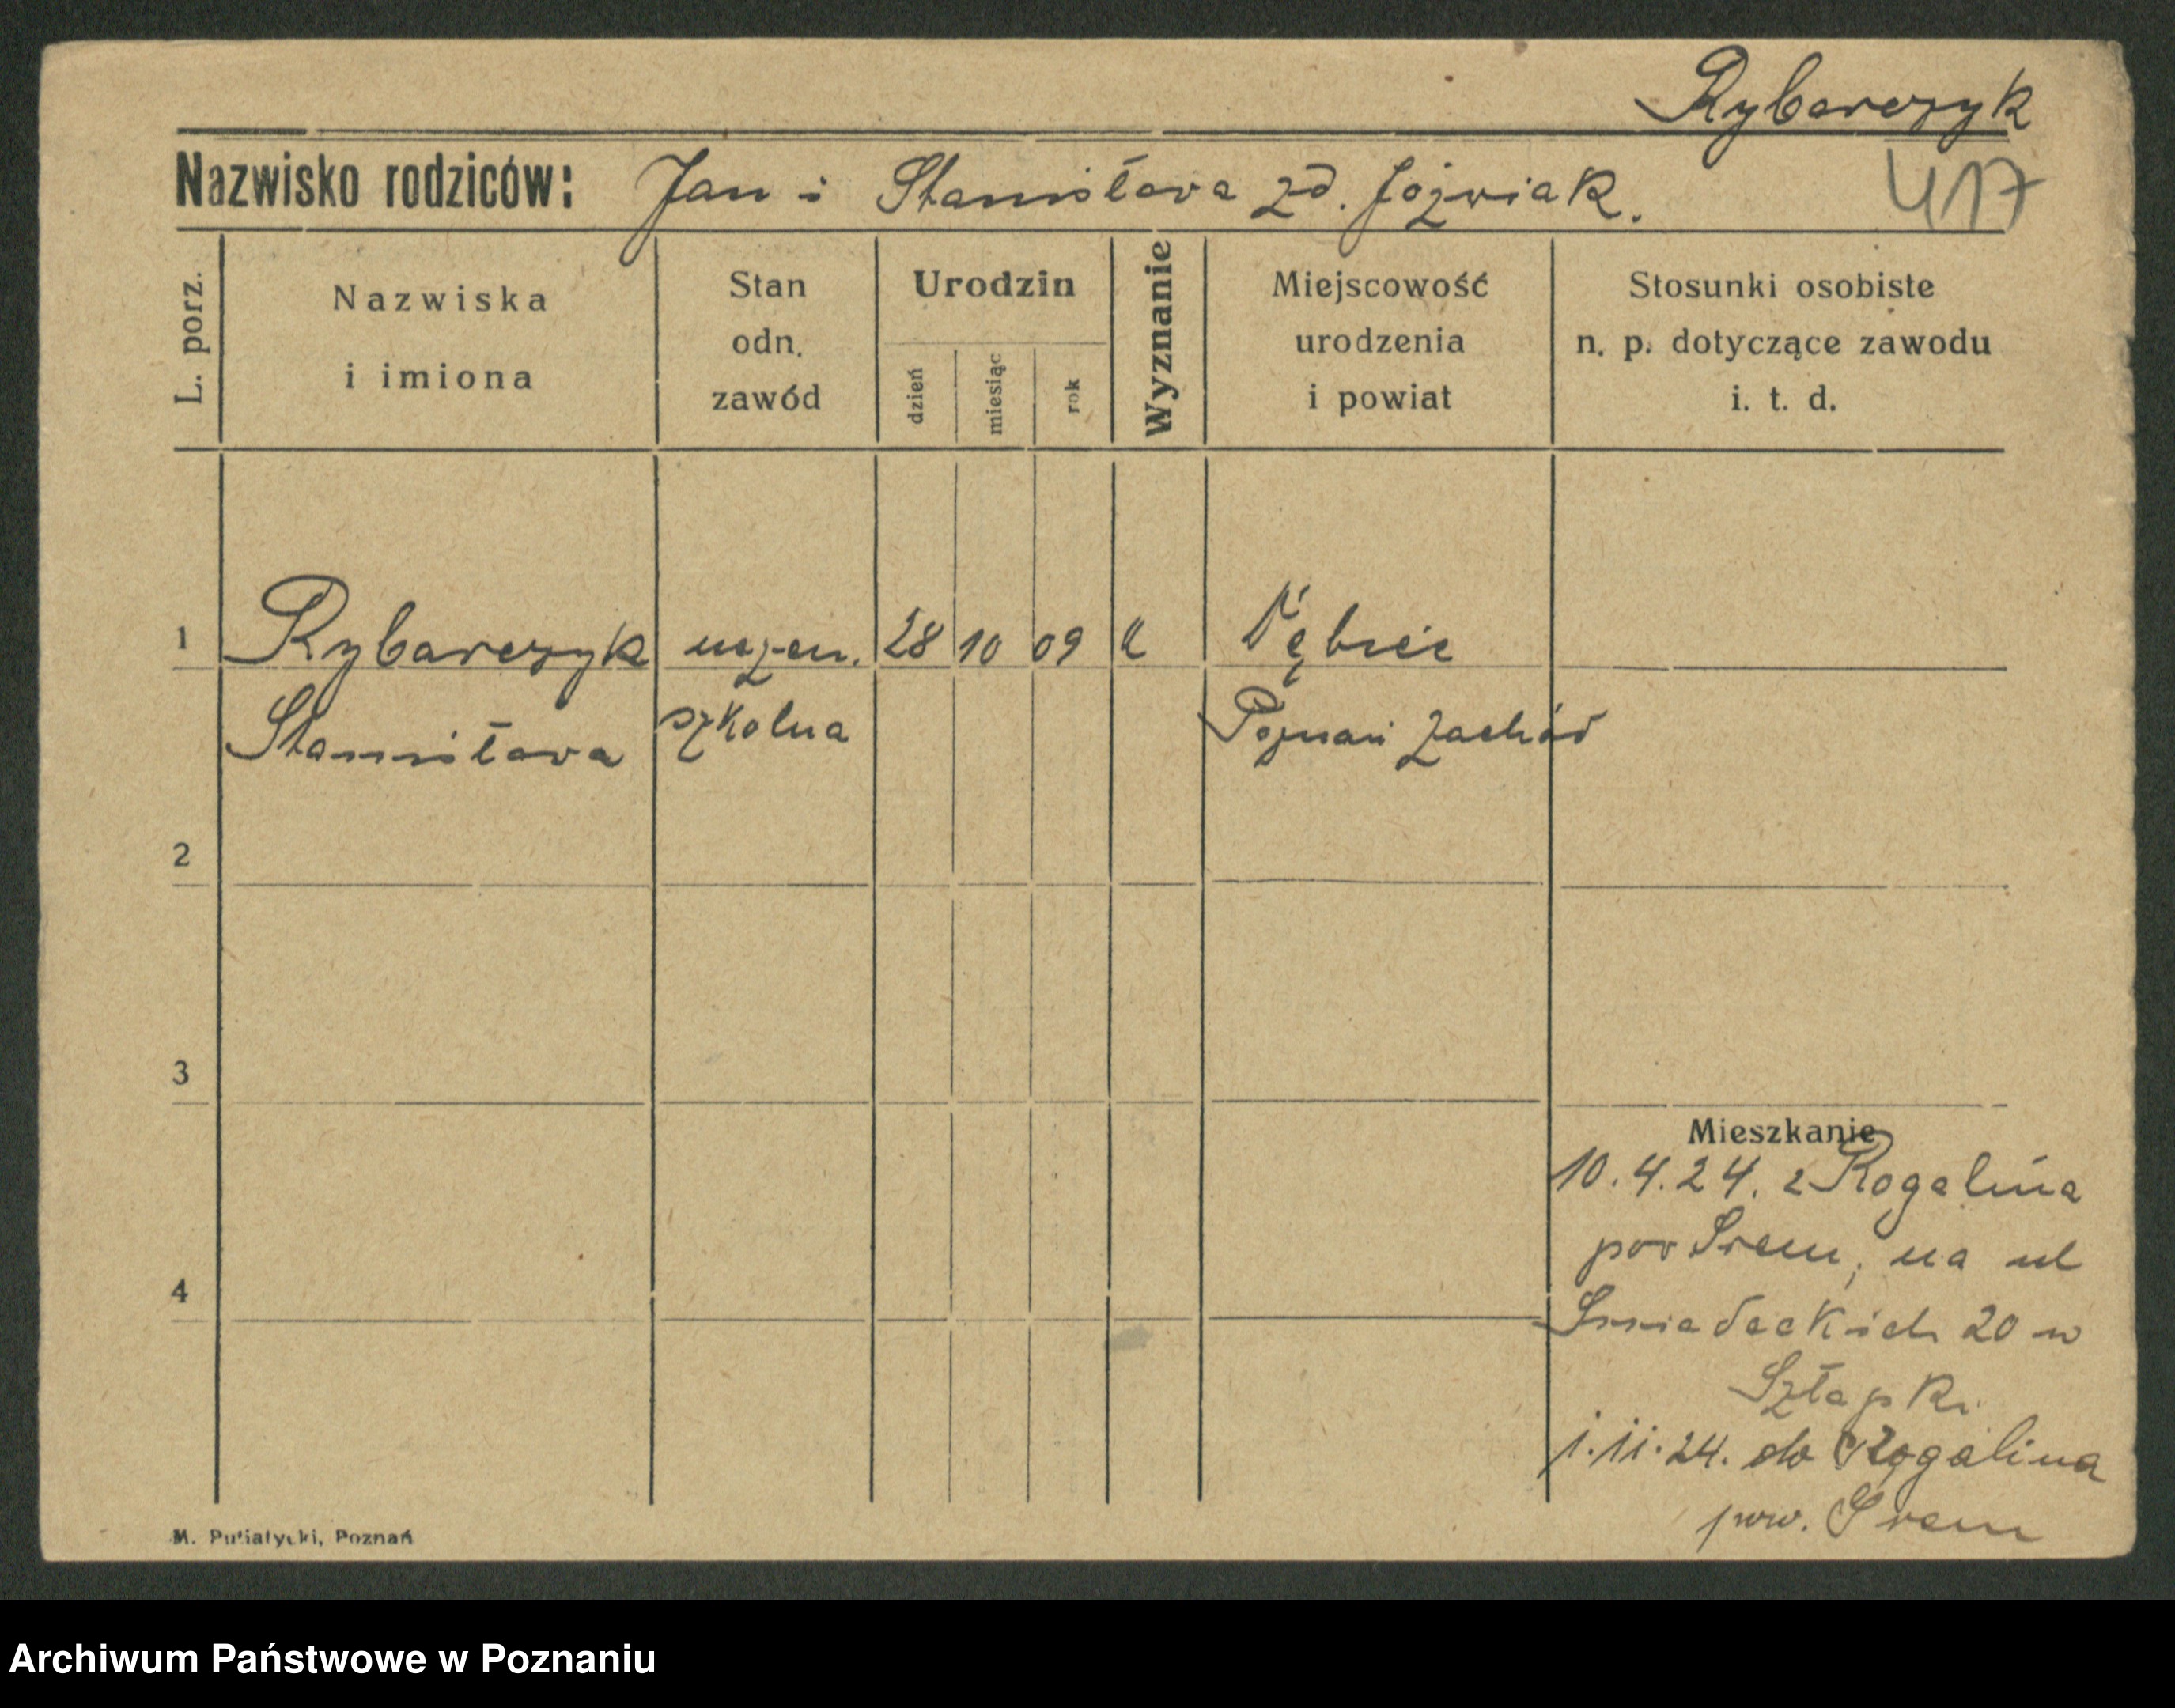 Rybarczyk
Nazwisko rodziców: Jan i Stanisława zd. Jóźwiak.
417
L. porz.
Nazwiska
i imiona
Stan
odn.
zawód
Urodzin
dzień
miesiąc
rok
Wyznanie
Miejscowość
urodzenia
i powiat
Stosunki osobiste
n. p. dotyczące zawodu
i. t. d.
1 Rybarczyk uczen. 28 10 09 k Dębiec
Stanisława szkolna Poznań Zachód
2
3
Mieszkanie
10.4.24. z Rogalina
pow Śrem, na ul
4
Śniadeckich 20 w
Szłapki
1.11.24. do Rogalina
pow. Śrem
M. Putiatycki, Poznań
Archiwum Państwowe w Poznaniu